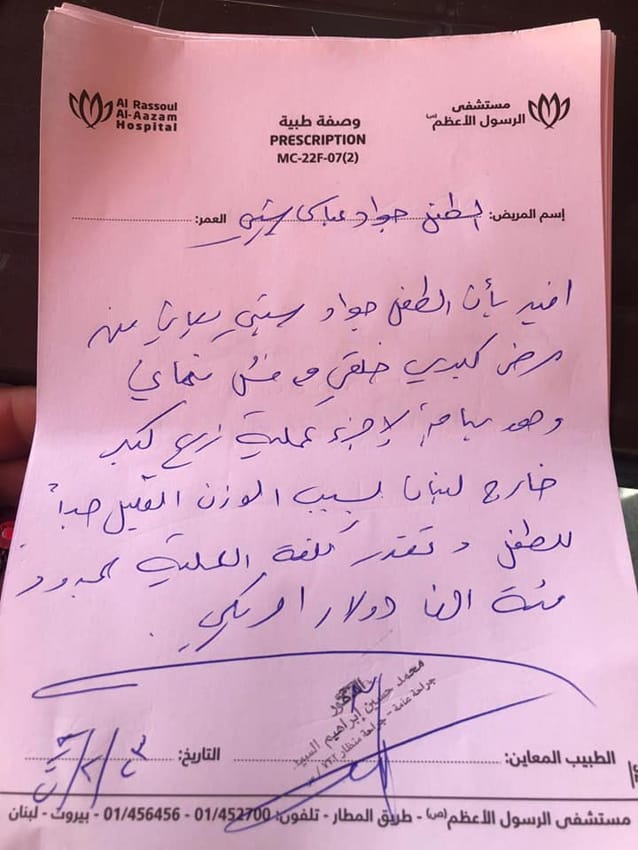 Al Rassoul
Al-Aazam
Hospital
وصفة طبية
PRESCRIPTION
MC-22F-07(2)
مستشفى
الرسول الأعظم(ص)
إسم المريض: الطفل جواد عباس العمر:
افيد بأن الطفل جواد يعاني من
مرض كبدي خلقي و فشل
وهو بحاجة لإجراء عملية زرع كبد
خارج لبنان بسبب الوزن القليل جداً
للطفل و تقدر كلفة العملية بحدود
مئة الف دولار امريكي.
الدكتور
محمد حسين إبراهيم السيد
جراحة عامة - جراحة منظار
الطبيب المعاين: التاريخ:
مستشفى الرسول الأعظم(ص) - طريق المطار - تلفون: 01/452700 - 01/456456 - بيروت - لبنان